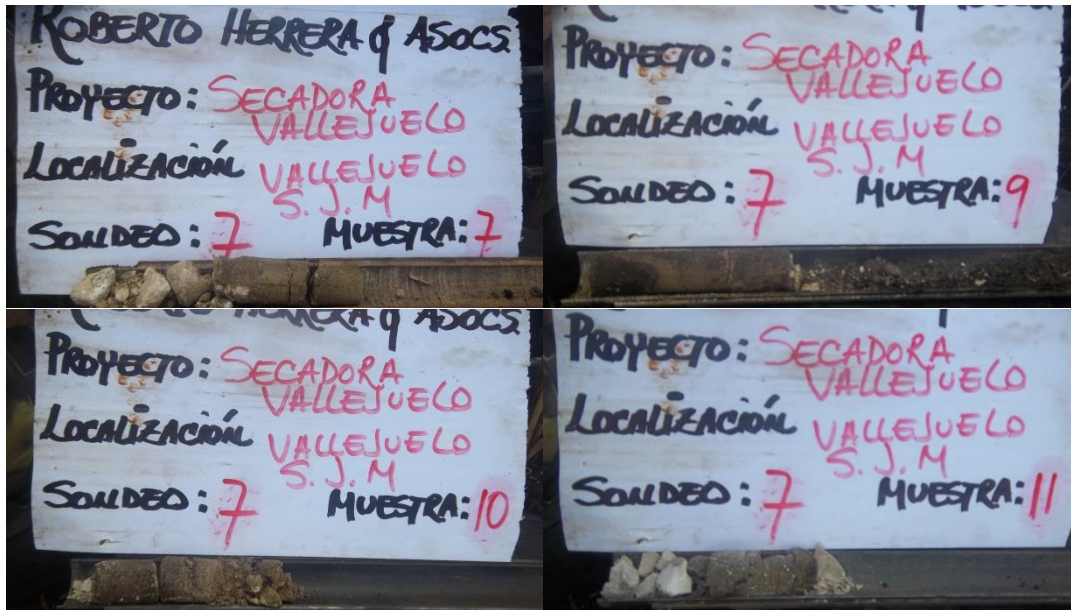 ROBERTO HERRERA & ASOCS.
PROYECTO: SECADORA
VALLEJUELO
LOCALIZACIÓN VALLEJUELO
S.J.M
SONDEO: 7 MUESTRA: 7
PROYECTO: SECADORA
VALLEJUELO
LOCALIZACIÓN VALLEJUELO
S.J.M
SONDEO: 7 MUESTRA: 9
HERRERA & ASOCS.
PROYECTO: SECADORA
VALLEJUELO
LOCALIZACIÓN VALLEJUELO
S.J.M
SONDEO: 7 MUESTRA: 10
PROYECTO: SECADORA
VALLEJUELO
LOCALIZACIÓN VALLEJUELO
S.J.M
SONDEO: 7 MUESTRA: 11